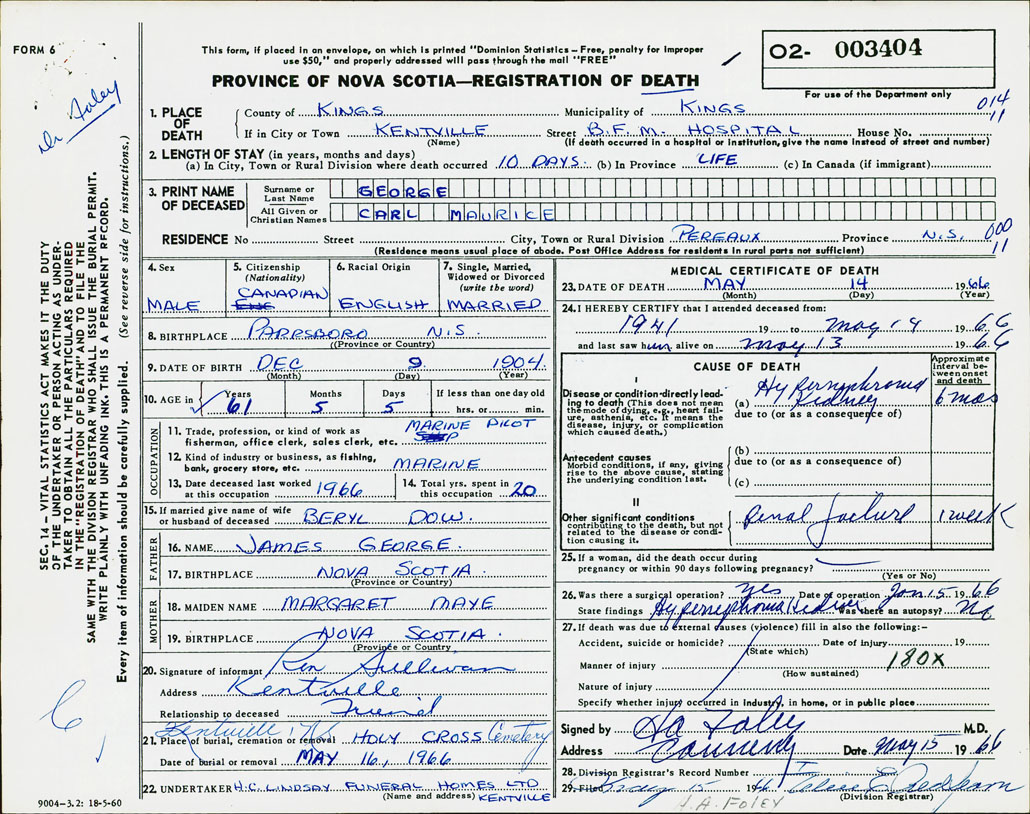 FORM 6
This form, if placed in an envelope, on which is printed "Dominion Statistics – Free, penalty for improper
use $50," and properly addressed will pass through the mail "FREE"
PROVINCE OF NOVA SCOTIA—REGISTRATION OF DEATH
02- 003404
For use of the Department only
014
11
Dr Foley
SEC. 14 – VITAL STATISTICS ACT MAKES IT THE DUTY
OF THE UNDERTAKER OR PERSON ACTING AS UNDER-
TAKER TO OBTAIN ALL THE PARTICULARS REQUIRED
IN THE "REGISTRATION OF DEATH" AND TO FILE THE
SAME WITH THE DIVISION REGISTRAR WHO SHALL ISSUE THE BURIAL PERMIT.
WRITE PLAINLY WITH UNFADING INK. THIS IS A PERMANENT RECORD.
Every item of information should be carefully supplied. (See reverse side for instructions.)
1. PLACE OF DEATH
County of KINGS Municipality of KINGS
If in City or Town KENTVILLE Street B.F.M. HOSPITAL House No.
(Name) (If death occurred in a hospital or institution, give the name instead of street and number)
2. LENGTH OF STAY (in years, months and days)
(a) In City, Town or Rural Division where death occurred 10 DAYS. (b) In Province LIFE (c) In Canada (if immigrant)
3. PRINT NAME OF DECEASED
Surname or Last Name GEORGE
All Given or Christian Names CARL MAURICE
RESIDENCE No Street City, Town or Rural Division PEREAUX Province N.S. 000
11
(Residence means usual place of abode. Post Office Address for residents in rural parts not sufficient)
4. Sex MALE
5. Citizenship (Nationality) CANADIAN
6. Racial Origin ENGLISH
7. Single, Married, Widowed or Divorced (write the word) MARRIED
8. BIRTHPLACE PARRSBORO N.S.
(Province or Country)
9. DATE OF BIRTH DEC 9 1904
(Month) (Day) (Year)
10. AGE in Years 61 Months 5 Days 5 If less than one day old hrs. or min.
OCCUPATION
11. Trade, profession, or kind of work as fisherman, office clerk, sales clerk, etc. MARINE PILOT
12. Kind of industry or business, as fishing, bank, grocery store, etc. MARINE
13. Date deceased last worked at this occupation 1966
14. Total yrs. spent in this occupation 20
15. If married give name of wife or husband of deceased BERYL DOW.
FATHER
16. NAME JAMES GEORGE.
17. BIRTHPLACE NOVA SCOTIA
(Province or Country)
MOTHER
18. MAIDEN NAME MARGARET MAYE
19. BIRTHPLACE NOVA SCOTIA.
(Province or Country)
20. Signature of informant Ken Sullivan
Address Kentville.
Relationship to deceased Friend
Kentville NS
21. Place of burial, cremation or removal HOLY CROSS Cemetery
Date of burial or removal MAY 16, 1966
22. UNDERTAKER H.C. LINDSAY FUNERAL HOMES LTD
(Name and address) KENTVILLE
9004–3.2: 18-5-60
MEDICAL CERTIFICATE OF DEATH
23. DATE OF DEATH MAY 14 1966
(Month) (Day) (Year)
24. I HEREBY CERTIFY that I attended deceased from:
1941 19 to May 14 1966
and last saw him alive on May 13 1966
CAUSE OF DEATH
Approximate interval between onset and death
I
Disease or condition directly leading to death (This does not mean the mode of dying, e.g., heart failure, asthenia, etc. It means the disease, injury, or complication which caused death.)
(a) Hypernephroma Kidney 6 mos
due to (or as a consequence of)
Antecedent causes
Morbid conditions, if any, giving rise to the above cause, stating the underlying condition last.
(b)
due to (or as a consequence of)
(c)
II
Other significant conditions contributing to the death, but not related to the disease or condition causing it.
Renal failure 1 week
25. If a woman, did the death occur during pregnancy or within 90 days following pregnancy?
(Yes or No)
26. Was there a surgical operation? Yes Date of operation Jan 15 1966
State findings Hypernephroma Kidney Was there an autopsy? No
27. If death was due to external causes (violence) fill in also the following:–
Accident, suicide or homicide? Date of injury 19
(State which)
Manner of injury 180X
(How sustained)
Nature of injury
Specify whether injury occurred in Industry, in home, or in public place
Signed by HA Foley M.D.
Address Canning Date May 15 1966
28. Division Registrar's Record Number
29. Filed May 15 1966
(Division Registrar)
H.A. FOLEY